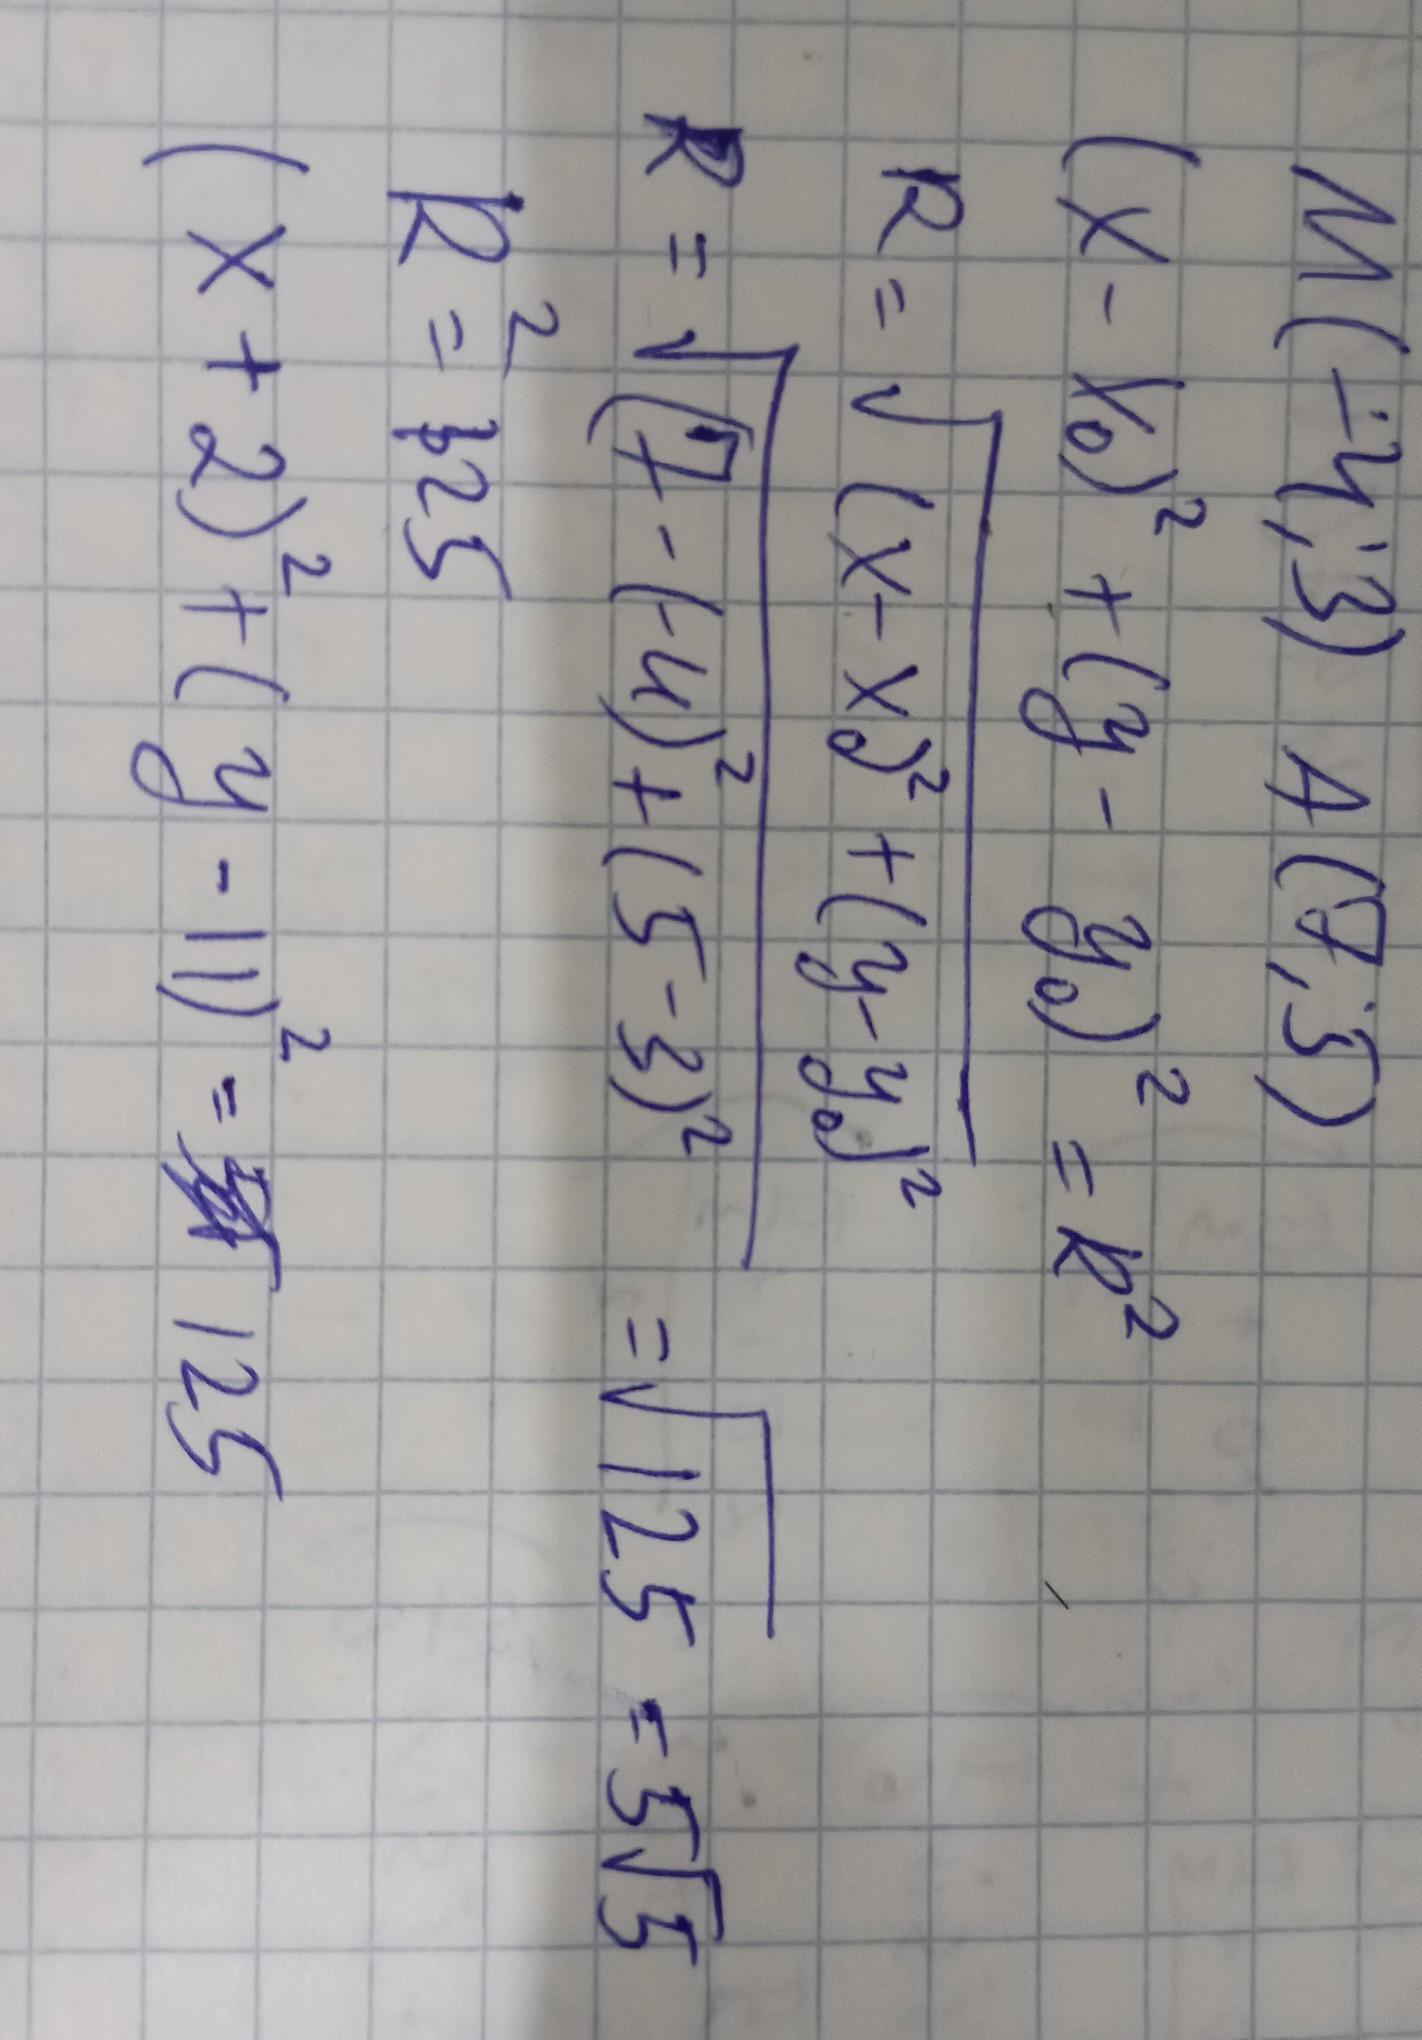 M(-4;3) A(7;5)
(x-x₀)²+(y-y₀)²=R²
R=√(x-x₀)²+(y-y₀)²
R=√(7-(-4)²+(5-3)² =√125 =5√5
R²=125
(x+2)²+(y-11)²= 125